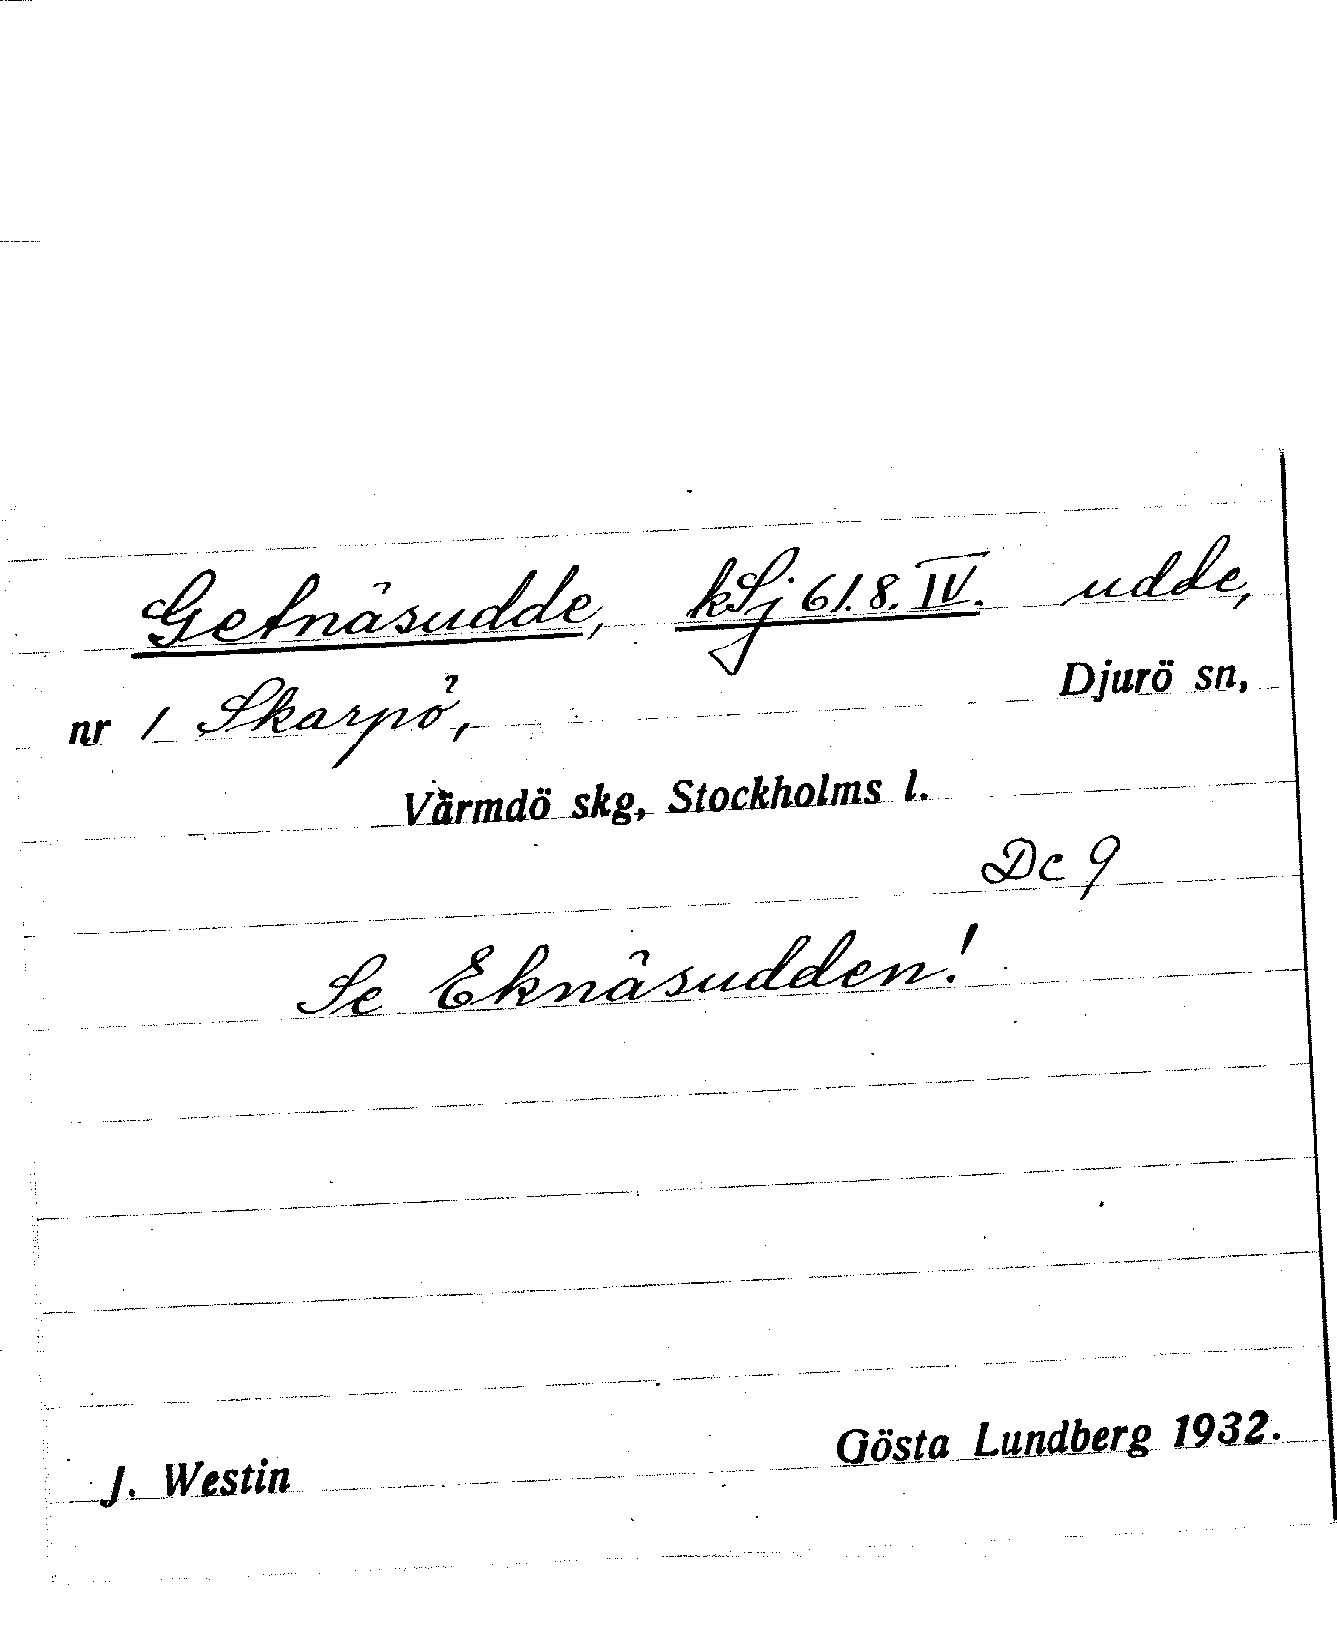 Getnäsudde, kSj 61.8.IV. udde,
nr 1 Skarpö, Djurö sn,
Värmdö skg, Stockholms l.
Dc 9
Se Eknäsudden!
J. Westin Gösta Lundberg 1932.